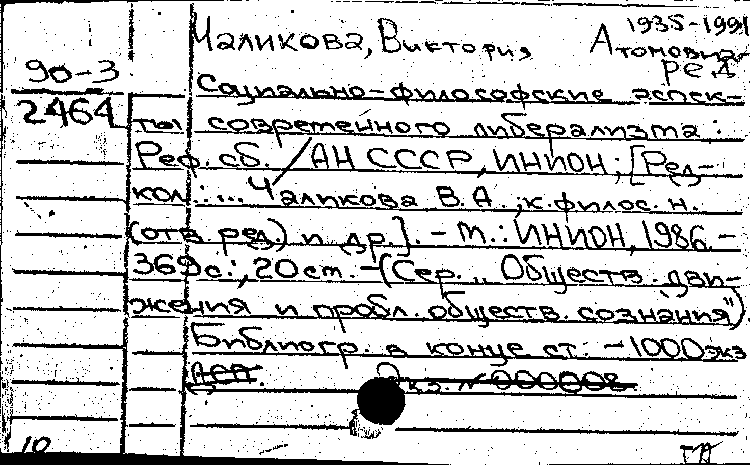 1935-1991
Чаликова, Виктория Атомовна-
ред
90-3
2464
Социально-философские аспек-
ты современного либерализма:
Реф. сб. / АН СССР, ИНИОН; [Ред-
кол.:... Чаликова В.А., к.филос.н.
(отв. ред.) и др.]. - М.: ИНИОН, 1986. -
369 с.; 20 см. - (Сер. „Обществ. дви-
жения и пробл. обществ. сознания").
Библиогр. в конце ст. - 1000 экз
Экз. № 000008
10